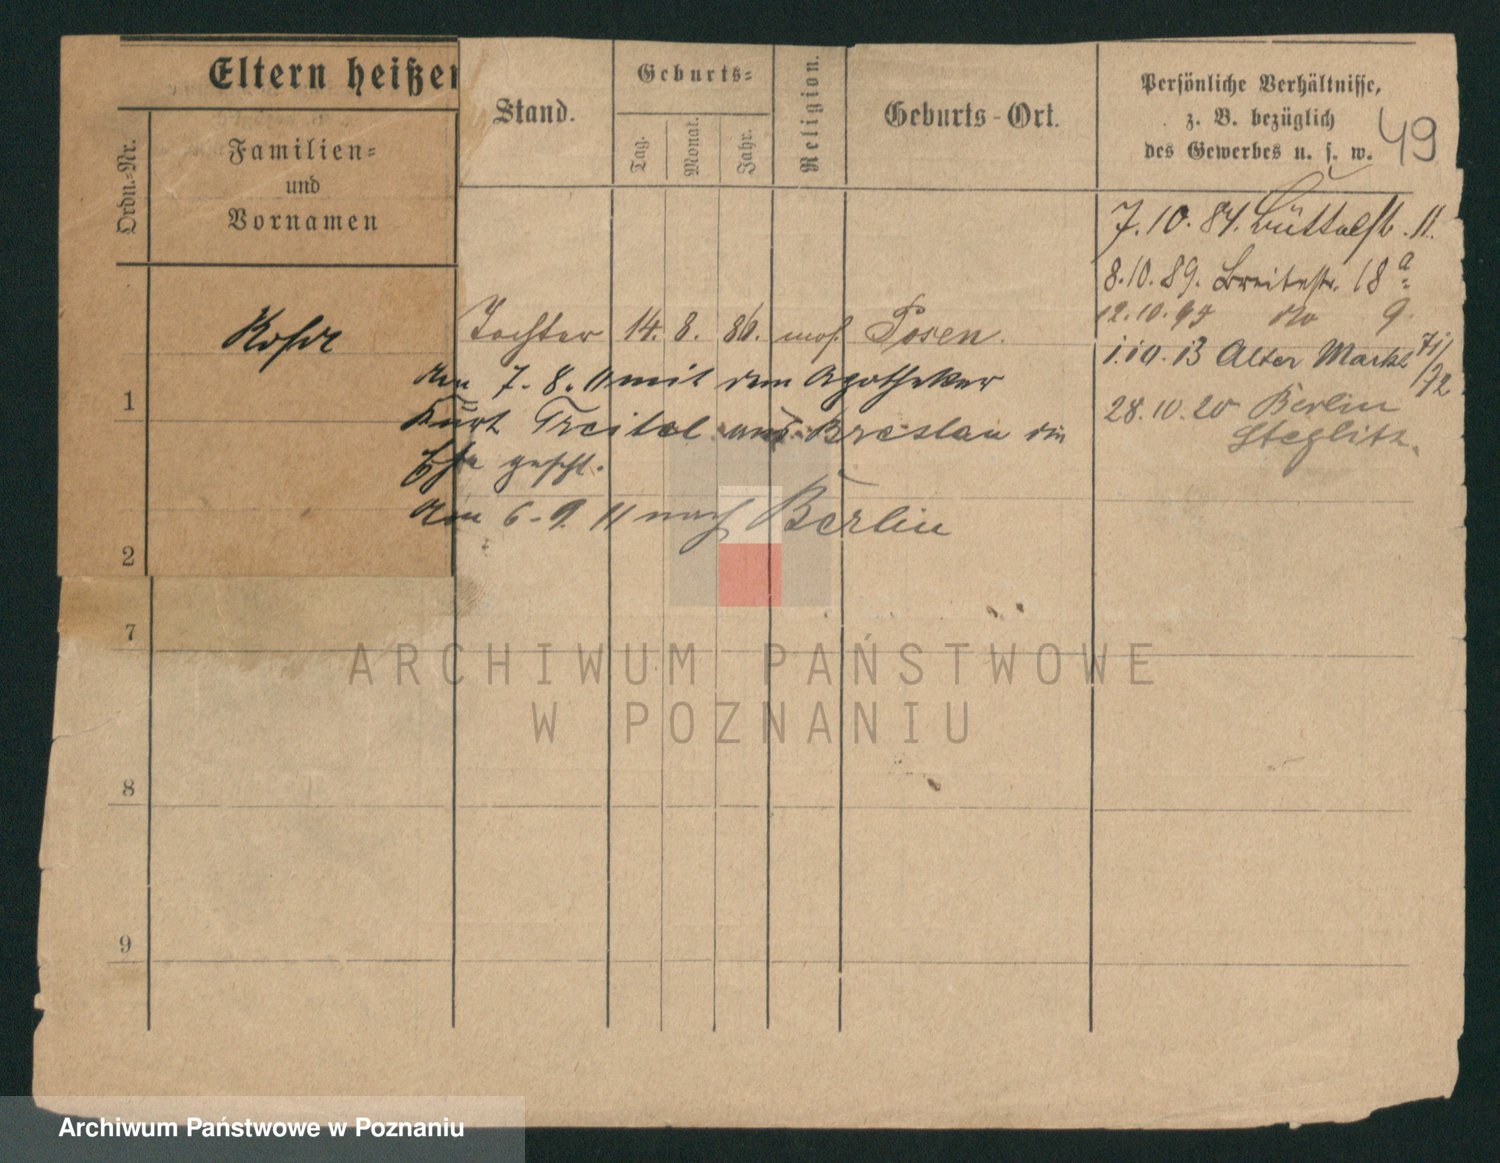 Eltern heißen
Ordn.-Nr.
Familien-
und
Vornamen
Stand.
Geburts-
Tag.
Monat.
Jahr.
Religion.
Geburts-Ort.
Persönliche Verhältnisse,
z. B. bezüglich
des Gewerbes u. s. w.
49
7.10.84. Büttelstr. 11.
8.10.89. Breitestr. 18 a
12.10.94 do 9.
1.10.13 Alter Markt 71/72
28.10.20 Berlin
Steglitz.
Tochter 14. 8. 86. mos. Posen.
1
den 7. 8. 11 mit dem Apotheker
Kurt Treitel aus Breslau die
Ehe geschl.
den 6. 9. 11 nach Berlin
2
7
8
9
ARCHIWUM PAŃSTWOWE
W POZNANIU
Archiwum Państwowe w Poznaniu